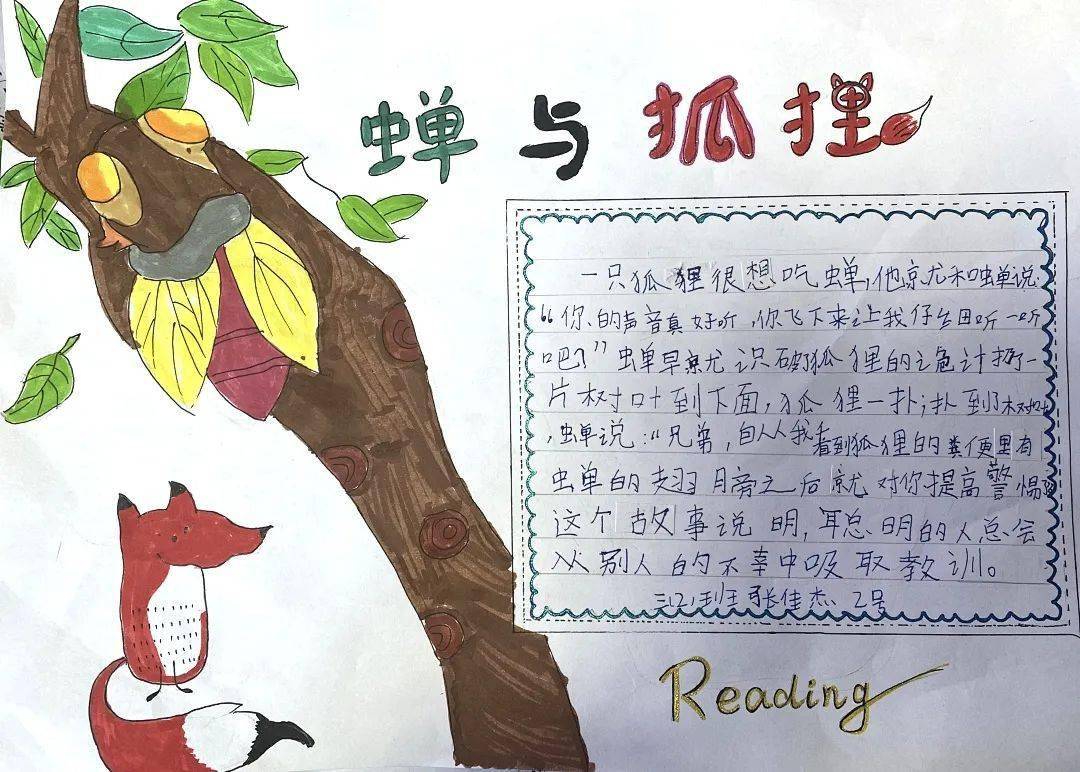 蝉与狐狸
一只狐狸很想吃蝉,他就和蝉说:
“你的声音真好听,你飞下来让我仔细听一听
吧?”蝉早就识破狐狸的诡计扔一
片树叶到下面,狐狸一扑,扑到树叶
,蝉说:“兄弟,自从我看到狐狸的粪便里有
蝉的翅膀之后就对你提高警惕
这个故事说明,聪明的人总会
从别人的不幸中吸取教训。
三(2)班张佳杰 2号
Reading